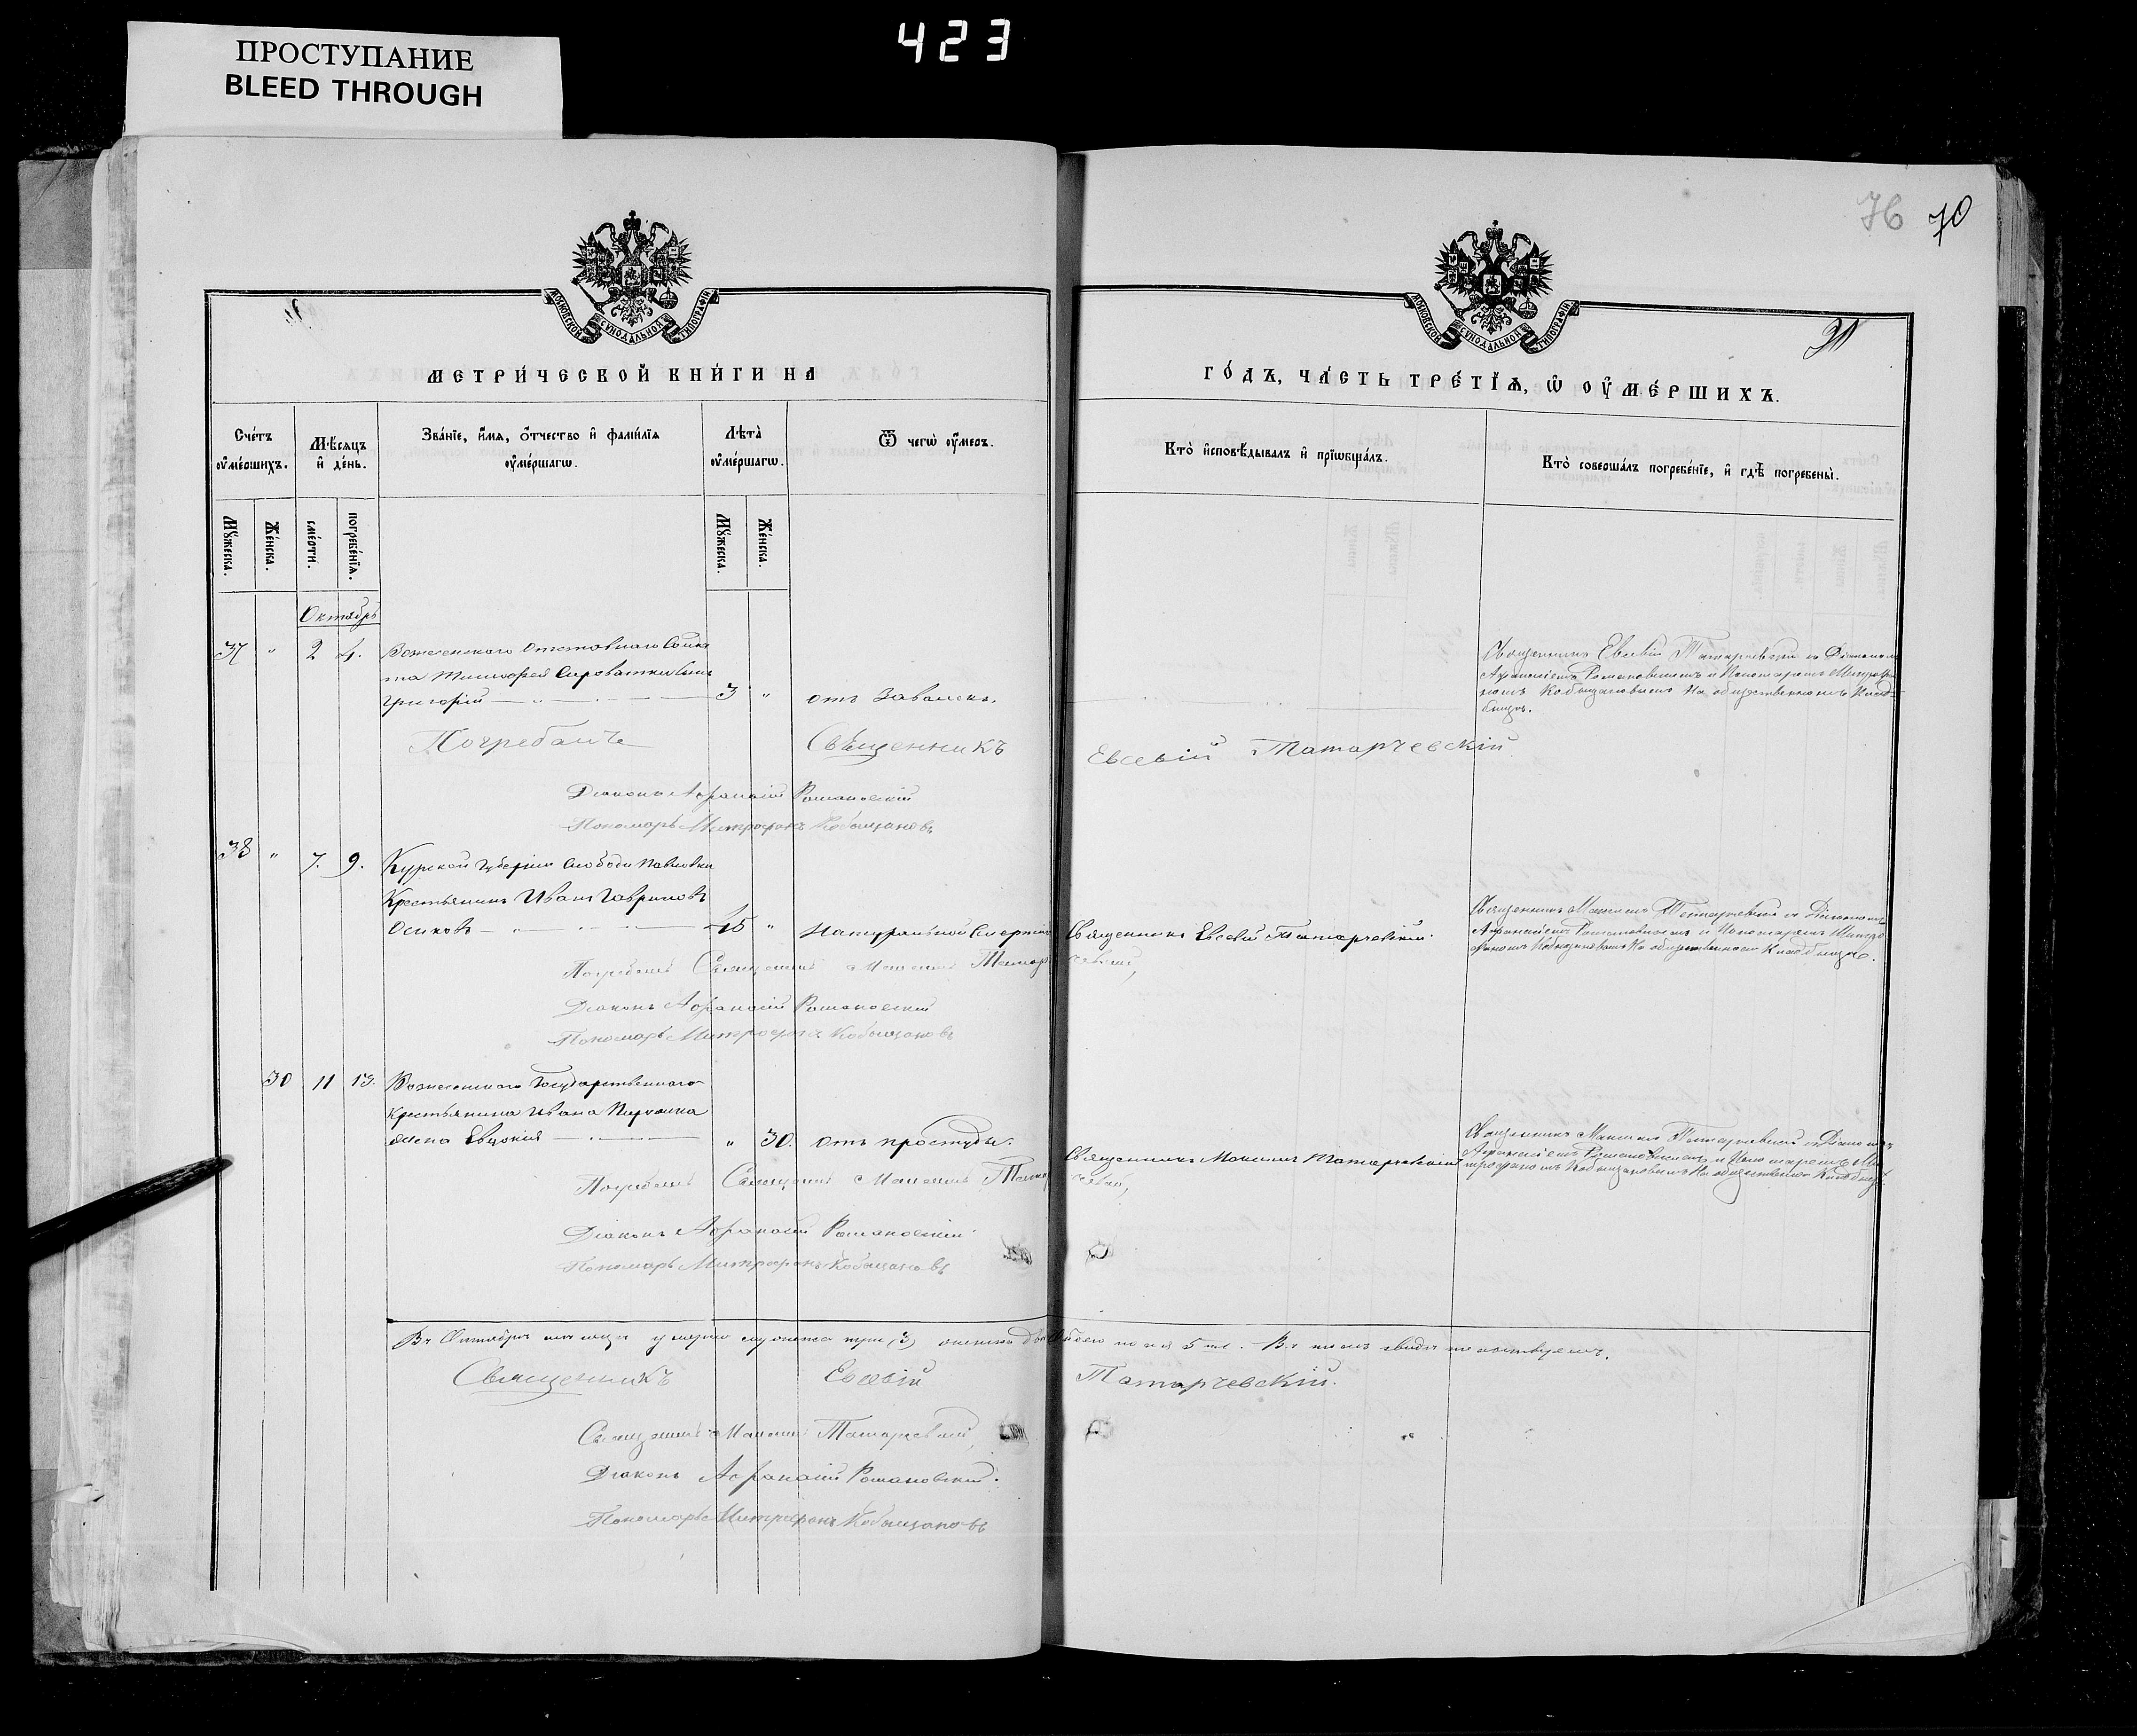 ПРОСТУПАНИЕ
BLEED THROUGH
423
76 70
МОСКОВСКОЙ СѴНОДАЛЬНОЙ ТИПОГРАФІИ
МОСКОВСКОЙ СѴНОДАЛЬНОЙ ТИПОГРАФІИ
МЕТРИ́ЧЕСКОЙ КНИ́ГИ НА
ГО́ДЪ, ЧА́СТЬ ТРЕ́ТІѦ, Ѡ҆ ОУ҆МЕ́РШИХЪ.
Сче́тъ оу҆ме́ршихъ.
Мѣ́сяцъ и҆ де́нь.
Зва́нїе, и҆́мѧ, ѻ҆́тчество и҆ фамѝлїѧ оу҆ме́ршагѡ.
Лѣ̀та оу҆ме́ршагѡ.
Ѿ чегѡ̀ оу҆́меръ.
Кто̀ и҆сповѣ́дывалъ и҆ прїѡбща́лъ.
Кто̀ соверша́лъ погребе́нїе, и҆ гдѣ̀ погребены̀.
Мꙋ́жеска.
Же́нска.
сме́рти.
погребе́нїѧ.
Мꙋ́жеска.
Же́нска.
Октябрь
37 " 2 4. Вознесенского Отставного Солда
та Тимофея Сыроваткы сынъ
Григорій 3 " отъ Завалокъ.
Священникъ Евсевій Татарчевскій и Діакономъ
Афанасіемъ Романовскимъ и Пономаремъ Митрофа
номъ Кобыщановымъ На общественномъ Клад
бищѣ.
Погребалъ Священникъ Евсевій Татарчевскій
Діаконъ Афанасій Романовскій
Пономарь Митрофанъ Кобыщановъ
38 " 7. 9. Курской Губерніи Слободы Павловки
Крестьянинъ Иванъ Гавриловъ
Осиковъ 45 " Натуральной Смертію Священникъ Евсевій Татарчевскій.
Священникъ Максимъ Татарчевскій и Діакономъ
Афанасіемъ Романовскимъ и Пономаремъ Митро
фаномъ Кобыщановымъ На общественномъ Кладбищѣ.
Погребалъ Священникъ Максимъ Татарчевскій,
Діаконъ Афанасій Романовскій
Пономарь Митрофанъ Кобыщановъ
30 11 13. Вознесенского Государственного
Крестьянина Ивана
жена Евдокія " 30. Отъ простуды. Священникъ Максимъ Татарчевскій
Священникъ Максимъ Татарчевскій и Діакономъ
Афанасіемъ Романовскимъ и Пономаремъ Ми
трофаномъ Кобыщановымъ На общественномъ Кладбищѣ.
Погребалъ Священникъ Максимъ Татарчевскій,
Діаконъ Афанасій Романовскій
Пономарь Митрофанъ Кобыщановъ
Въ Октябрѣ мѣсяцѣ умерло мужеска три (3) женска двѣ обоего пола 5 Въ чемъ свидѣтельствуемъ.
Священникъ Евсевій Татарчевскій.
Священникъ Максимъ Татарчевскій,
Діаконъ Афанасій Романовскій.
Пономарь Митрофанъ Кобыщановъ